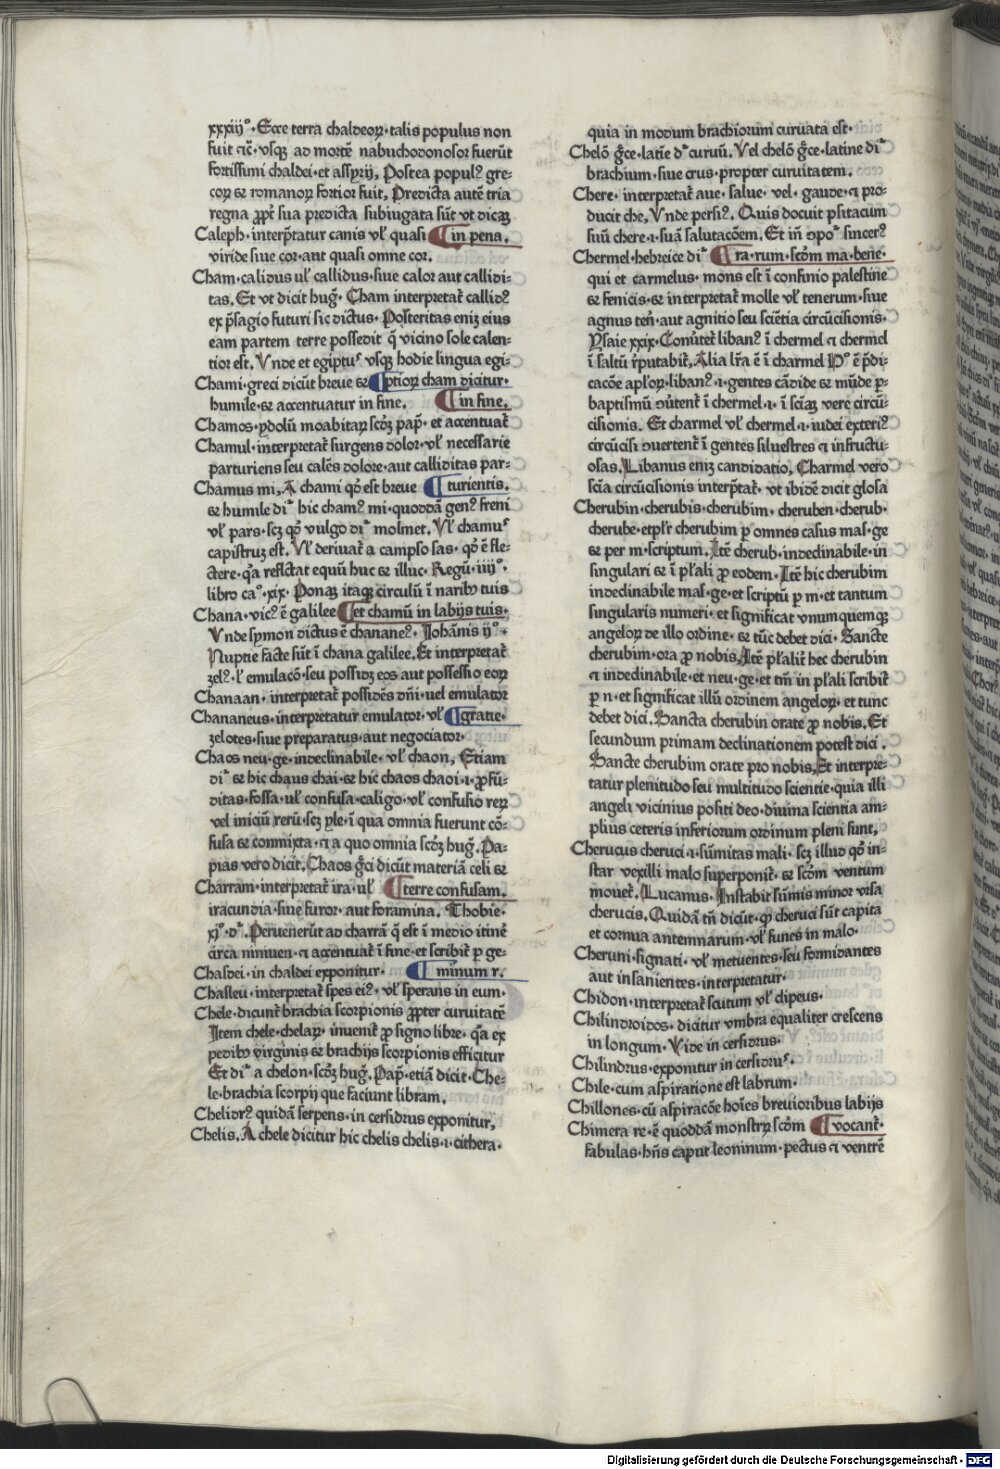 xxxiijº. Ecce terra chaldeoꝝ. talis populus non
fuit ⁊c̄. vsqꝫ ad mortē nabuchodonosor fuerūt
fortissimi chaldei. et assyrij, Postea populꝰ gre-
coꝝ ⁊ romanoꝝ fortior fuit, Predicta autē tria
regna ꝓpt̄ sua predicta subiugata sūt vt dicaꝫ
Caleph. interp̄tatur canis vl̄ quasi ¶ in pena.
viride siue cor. aut quasi omne cor.
Cham. calidus ul̄ callidus. siue calor aut callidi-
tas. Et vt dicit huḡ. Cham interpretat̄ callidꝰ
ex p̄sagio futuri sic dictus. Posteritas eniꝫ eius
eam partem terre possedit q̄ vicino sole calen-
tior est. Vnde et egiptuˢ vsqꝫ hodie lingua egi-
Chami. greci dicūt breue ⁊ ¶ ptioꝝ cham dicitur.
humile. ⁊ accentuatur in fine. ¶ in fine.
Chamos. ydolū moabitaꝝ scd̄ꝫ pap̄. et accentuat̄
Chamul. interpretat̄ surgens dolor. vl̄ necessarie
parturiens seu calēs dolore. aut calliditas par-
Chamus mi, A chami qd̄ est breue ¶ turientis.
⁊ humile di͛ hic chamꝰ mi. quoddā genꝰ freni
vl̄ pars. scꝫ qd̄ vulgo di͛ molmet. Vl̄ chamuˢ
capistruꝫ est. Vl̄ deriuat̄ a campso sas. qd̄ ē fle-
ctere. q̄a reflectat equū huc ⁊ illuc. Regū. iiijº.
libro caº. xix. Ponaꝫ itaqꝫ circulū ī naribꝰ tuis
Chana. vicꝰ ē galilee ¶ et chamū in labijs tuis.
Vnde symon dictus ē chananeꝰ. Johānis ijº.
Nuptie facte sūt ī chana galilee. Et interpretat̄
zelꝰ. l̓ emulacō. seu possidꝫ eos aut possessio eoꝝ
Chanaan. interpretat̄ possidēs dn̄i. uel emulator
Chananeus. interpretatur emulator. vl̄ ¶ gratie.
zelotes. siue preparatus. aut negociator.
Chaos neu. ge. indeclinabile. vl̄ chaon, Etiam
di͛ ⁊ hic chaus chai. ⁊ hic chaos chaoi. ı. ꝓfū-
ditas. fossa. ul̄ confusa. caligo. vl̄ confusio reꝝ
vel iniciū rerū. scꝫ yle. ī qua omnia fuerunt cō-
fusa ⁊ conmixta. ⁊ a quo omnia scd̄ꝫ huḡ. Pa-
pias vero dicit. Chaos ḡci dicūt materiā celi ⁊
Charram. interpretat̄ ira. ul̄ ¶ terre confusam.
iracundia. siue furor. aut foramina. Thobie.
xjº. dº. Peruenerūt ad charrā q̄ est ī medio itinē
circa niniuen. ⁊ accentuat̄ ī fine. et scribit̄ p ge-
Chasdei. in chaldei exponitur. ¶ minum r.
Chasleu. interpretat̄ spes eiꝰ. vl̄ sperans in eum.
Chele. dicunt̄ brachia scorpionis ꝓpter curuitatē
Item chele. chelaꝝ. inuenit̄ ꝓ signo libre. q̄a ex
pedibꝰ virginis ⁊ brachijs scorpionis efficitur
Et di͛ a chelon. scd̄ꝫ huḡ. Pap̄. etiā dicit. Che-
le. brachia scorpij que faciunt libram.
Chelidrꝰ quidā serpens. in cersidrus exponitur,
Chelis. A chele dicitur hic chelis chelis. ı. cithera.
quia in modum brachiorum curuata est.
Chelō g̅ce. latīe d͛ curuū. Vel chelō g̅ce. latine di͛
brachium. siue crus. propter curuitatem.
Chere. interpretat̄ aue. salue. vel. gaude. ⁊ pro-
ducit che, Vnde persiꝰ. Quis docuit psitacum
suū chere. ı. suā salutacōem. Et in̄ dpoͬ sincerꝰ
Chermel. hebreice di͛ ¶ ra. rum. scd̄m ma. bene.
qui et carmelus. mons est ī confinio palestine
⁊ fenicis. ⁊ interpretat̄ molle vl̄ tenerum. siue
agnus ten̄. aut agnitio seu sciētia circūcisionis.
Ysaie xxix. Conūtet̄ libanꝰ ī chermel ⁊ chermel
ī saltū r̄putabit̄. Alia lr̄a ē ī charmel Pº ē p̄di-
cacōe apl̄oꝝ. libanꝰ. ı. gentes cādide ⁊ mūde p̱
baptismū ꝯūtent̄ ī chermel. ı. ī sciāꝫ vere circū-
cisionis. Et charmel vl̄ chermel. ı. iudei exteriꝰ
circūcisi ꝯuertent̄ ī gentes siluestres ⁊ infructu-
osas. Libanus eniꝫ candidatio. Charmel vero
scīa circūcisionis interp̄tat̄. vt ibidē dicit glosa
Cherubin. cherubis. cherubim. cheruben. cherub.
cherube. etpl̓r cherubim p omnes casus mas. ge
⁊ per m. scriptum. Itē cherub. indeclinabile. in
singulari ⁊ ī pl̄ali ꝓ eodem. Itē hic cherubim
indeclinabile mas. ge. et scriptū p m. et tantum
singularis numeri. et significat vnumquemqꝫ
angeloꝝ de illo ordine. ⁊ tūc debet dici. Sancte
cherubim. ora ꝓ nobis. Itē pl̄alit̄ hec cherubin
⁊ indeclinabile. et neu. ge. et tm̄ in pl̄ali scribit̄
p n. et significat illū ordinem angeloꝝ. et tunc
debet dici. Sancta cherubin orate ꝓ nobis. Et
secundum primam declinationem potest dici.
Sancte cherubim orate pro nobis. Et interpre-
tatur plenitudo seu multitudo scientie. quia illi
angeli vicinius positi deo. diuina scientia am-
plius ceteris inferiorum ordinum pleni sunt,
Cherucus cheruci. ı. sūmitas mali. scꝫ illud qd̄ in-
star vexilli malo superponit̄. ⁊ scd̄m ventum
mouet̄. Lucanus. Instabit sūmis minor vrsa
cherucis. Quidā tn̄ dicūt. ꝙ cheruci sūt capita
et cornua antemnarum. vl̄ funes in malo.
Cheruni. signati. vl̄ metuentes. seu formidantes
aut insanientes. interpretatur.
Chidon. interpretat̄ scutum vl̄ clipeus.
Chilindroidos. dicitur vmbra equaliter crescens
in longum. Vide in cersidrus.
Chilindrus. exponitur in cersidruˢ.
Chile. cum aspiratione est labrum.
Chillones. cū aspiracōe hoīes breuioribus labijs
Chimera re. ē quoddā monstrꝝ scd̄m ¶ vocant̄.
fabulas. hn̄s caput leoninum. pectus ⁊ ventrē
Digitalisierung gefördert durch die Deutsche Forschungsgemeinschaft - DFG